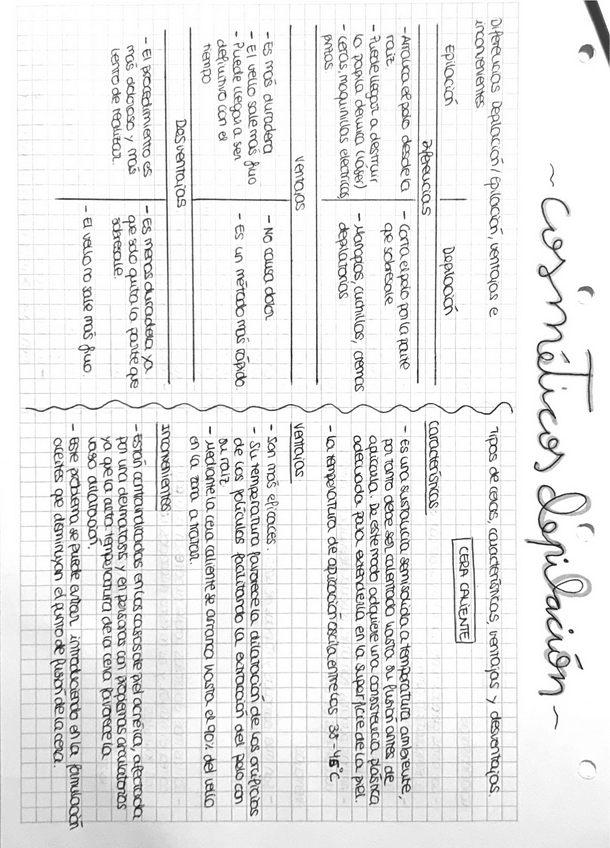 ~ cosméticos depilación ~
Diferencias Depilación/Epilación, ventajas e
inconvenientes
Epilación
Depilación
Diferencias
- Arranca el pelo desde la
raíz.
- Puede llegar a destruir
la papila dérmica (láser)
- Ceras, maquinillas eléctricas,
pinzas
- Corta el pelo por la parte
que sobresale
- Navajas, cuchillas, cremas
depilatorias
Ventajas
- Es más duradera
- El vello sale más fino
- Puede llegar a ser
definitivo con el
tiempo
- No causa dolor
- Es un método más rápido
Desventajas
- El procedimiento es
más doloroso y más
lento de realizar.
- Es menos duradera ya
que solo quita la parte que
sobresale.
- El vello no sale más fino
Tipos de ceras, características, ventajas y desventajas.
CERA CALIENTE
Características
- Es una sustancia semisólida a temperatura ambiente,
por tanto debe ser calentada hasta su fusión antes de
aplicarla. De este modo adquiere una consistencia plástica
adecuada para extenderla en la superficie de la piel.
- La temperatura de aplicación oscila entre los 38-45°C
Ventajas
- Son más eficaces.
- Su temperatura favorece la dilatación de los orificios
de los folículos facilitando la extracción del pelo con
su raíz
- Mediante la cera caliente se arranca hasta el 90% del vello
en la zona a tratar.
Inconvenientes:
- Están contraindicadas en los casos de piel acnéica, afectada
por una dermatosis y en personas con problemas circulatorios
ya que la alta temperatura de la cera favorece la
vaso dilatación.
- Este problema se puede evitar introduciendo en la formulación
aceites que disminuyan el punto de fusión de la cera.